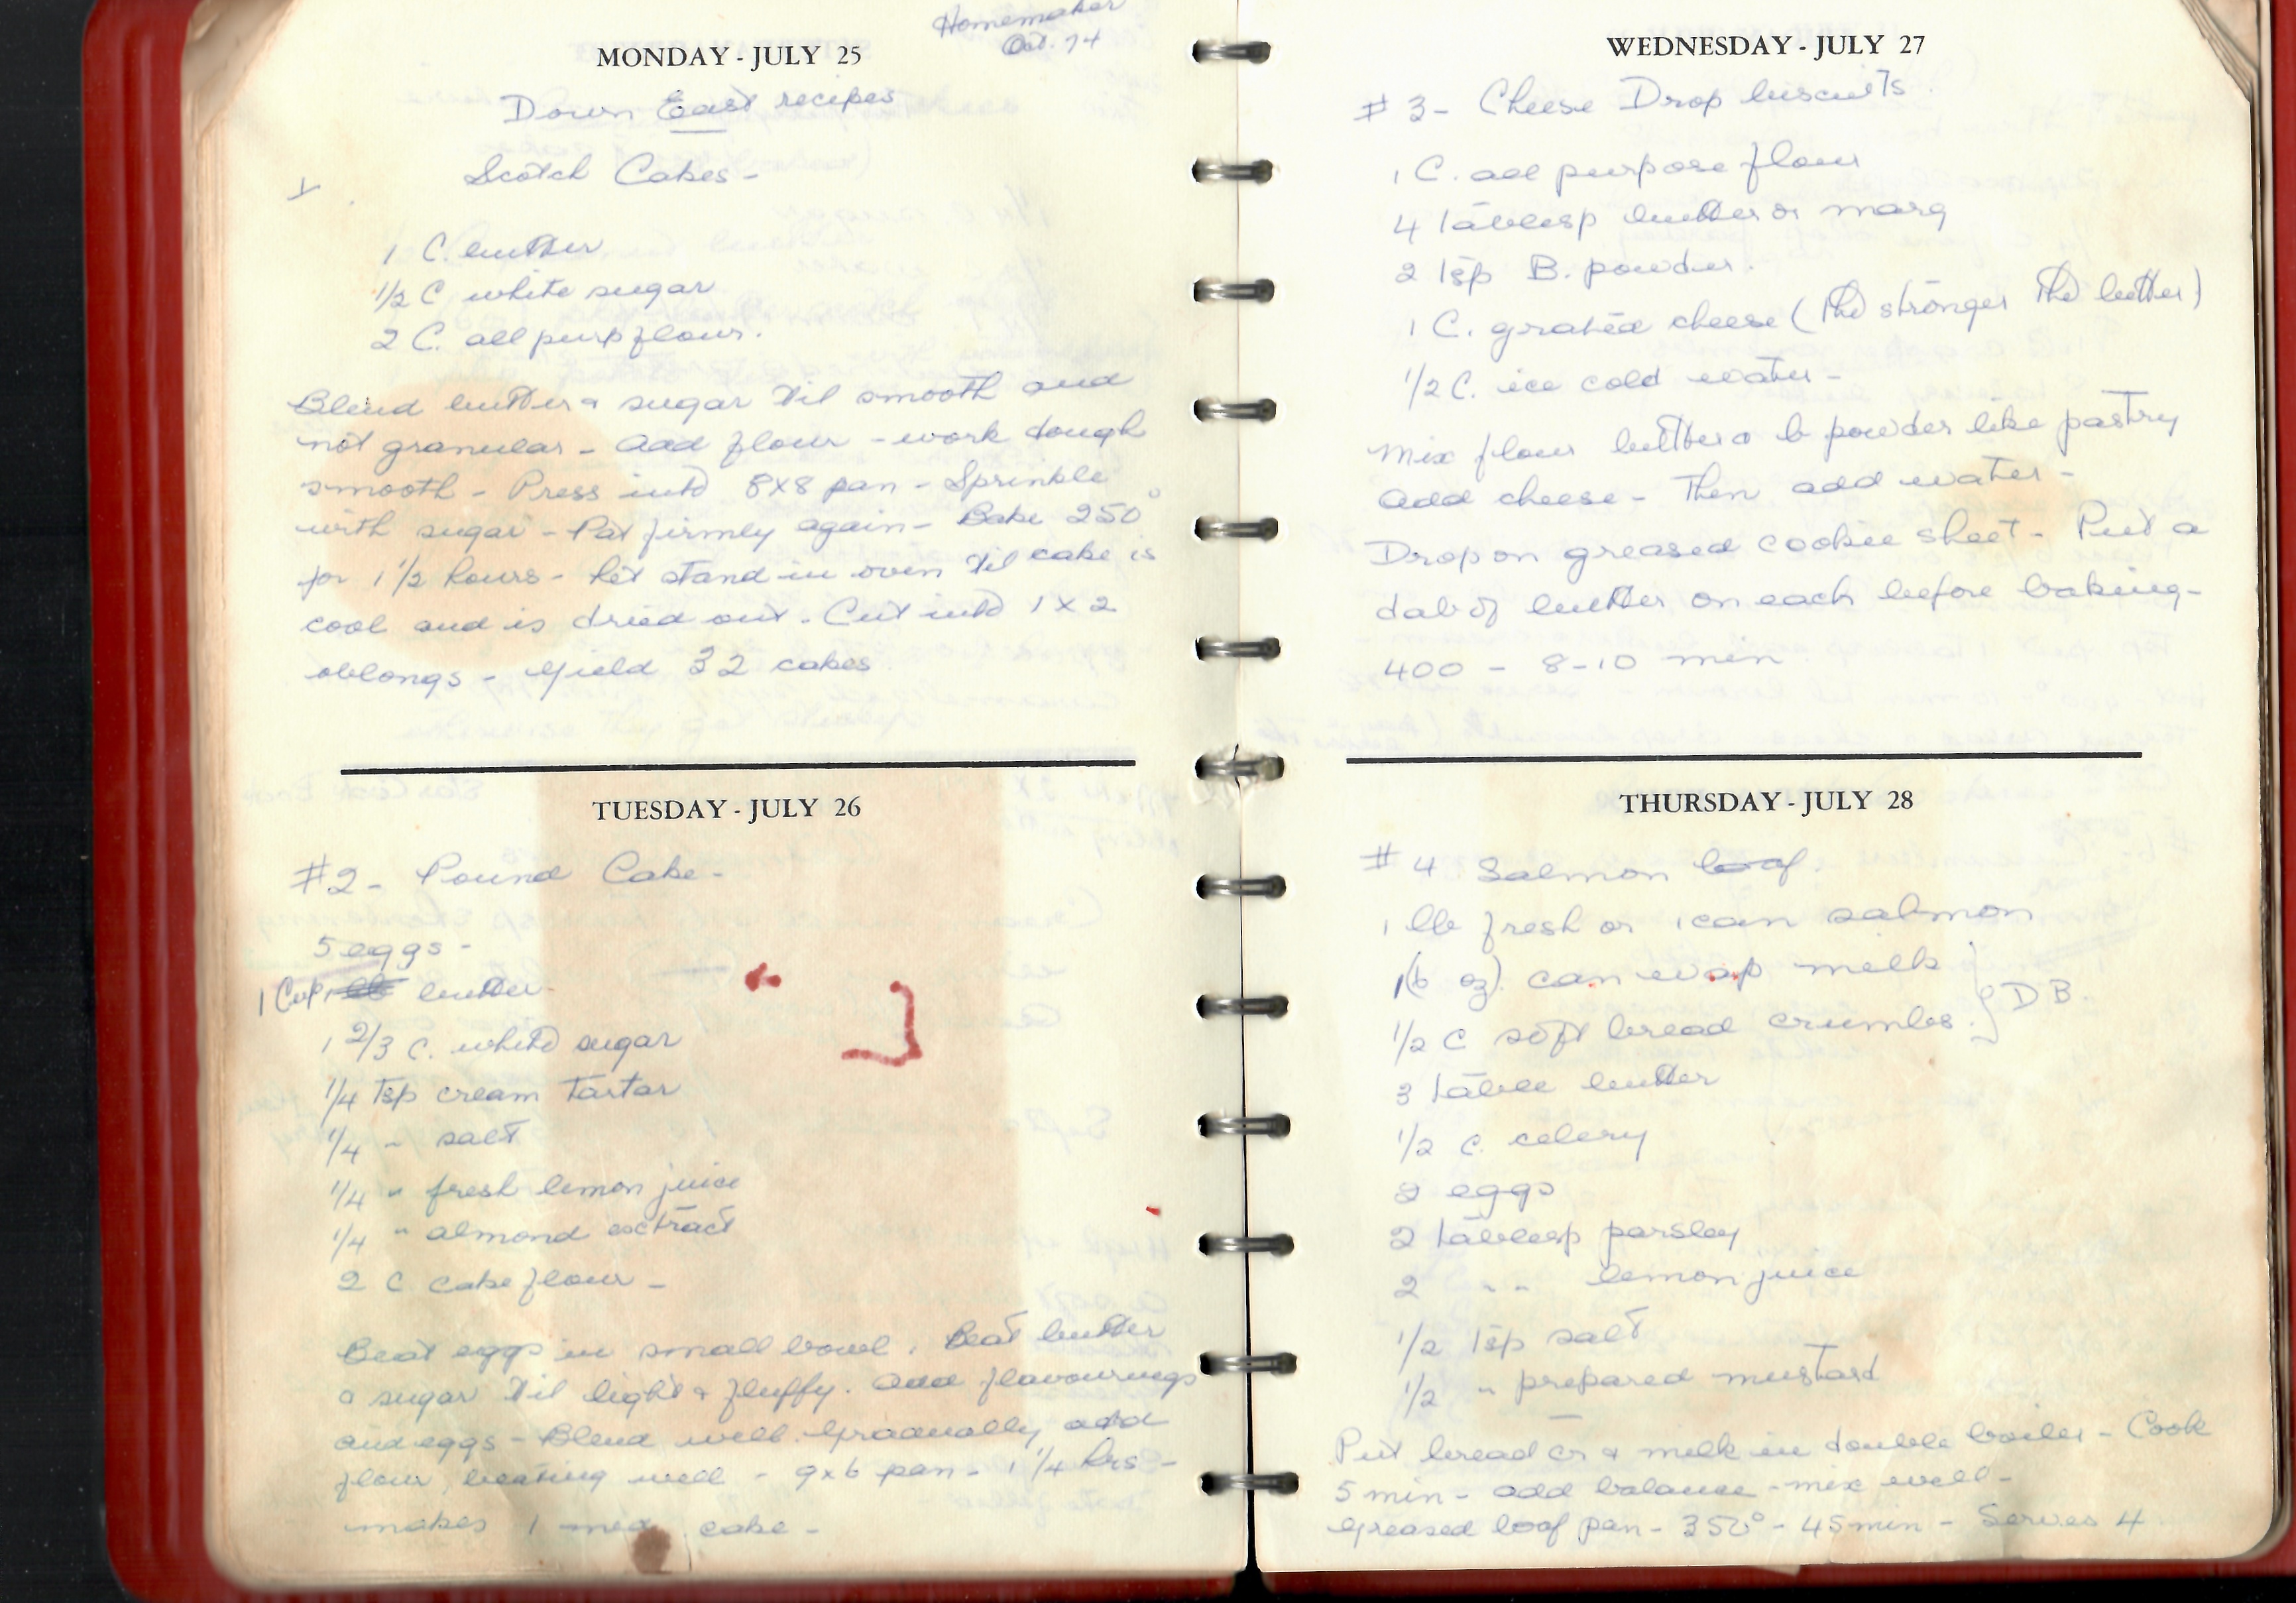 Homemaker
Oct. 74
MONDAY - JULY 25
Down East recipes
Scotch Cakes -
1 C. butter
1/2 C white sugar
2 C. all purp flour.
Blend butter & sugar til smooth and
not granular - Add flour - work dough
smooth - Press into 8x8 pan - Sprinkle
with sugar - Pat firmly again - Bake 250°
for 1 1/2 hours - Let stand in oven til cake is
cool and is dried out. Cut into 1 x 2
oblongs - Yield 32 cakes
TUESDAY - JULY 26
#2 - Pound Cake -
5 eggs -
1 Cup butter -
1 2/3 C. white sugar
1/4 Tsp cream Tartar
1/4 " salt
1/4 " fresh lemon juice
1/4 " almond extract
2 C. cake flour -
Beat eggs in small bowl. Beat butter
& sugar til light & fluffy. Add flavourings
and eggs - Blend well. Gradually add
flour, beating well - 9x6 pan - 1 1/4 hrs -
makes 1 med cake -
WEDNESDAY - JULY 27
# 3 - Cheese Drop biscuits
1 C. all purpose flour
4 tablesp butter or marg
2 tsp B. powder.
1 C. grated cheese (the stronger the better)
1/2 C. ice cold water -
Mix flour butter & b powder like pastry
Add cheese - Then add water -
Drop on greased cookie sheet - Put a
dab of butter on each before baking -
400 - 8-10 min
THURSDAY - JULY 28
# 4 Salmon loaf.
1 lb fresh or 1 can salmon
1 (6 oz). can evap milk
1/2 C soft bread crumbs. } DB.
3 table butter
1/2 C. celery
2 eggs
2 tablesp parsley
2 " " lemon juice
1/2 tsp salt
1/2 " prepared mustard
Put bread cr & milk in double boiler - Cook
5 min - add balance - mix well -
Greased loaf pan - 350° - 45 min - Serves 4